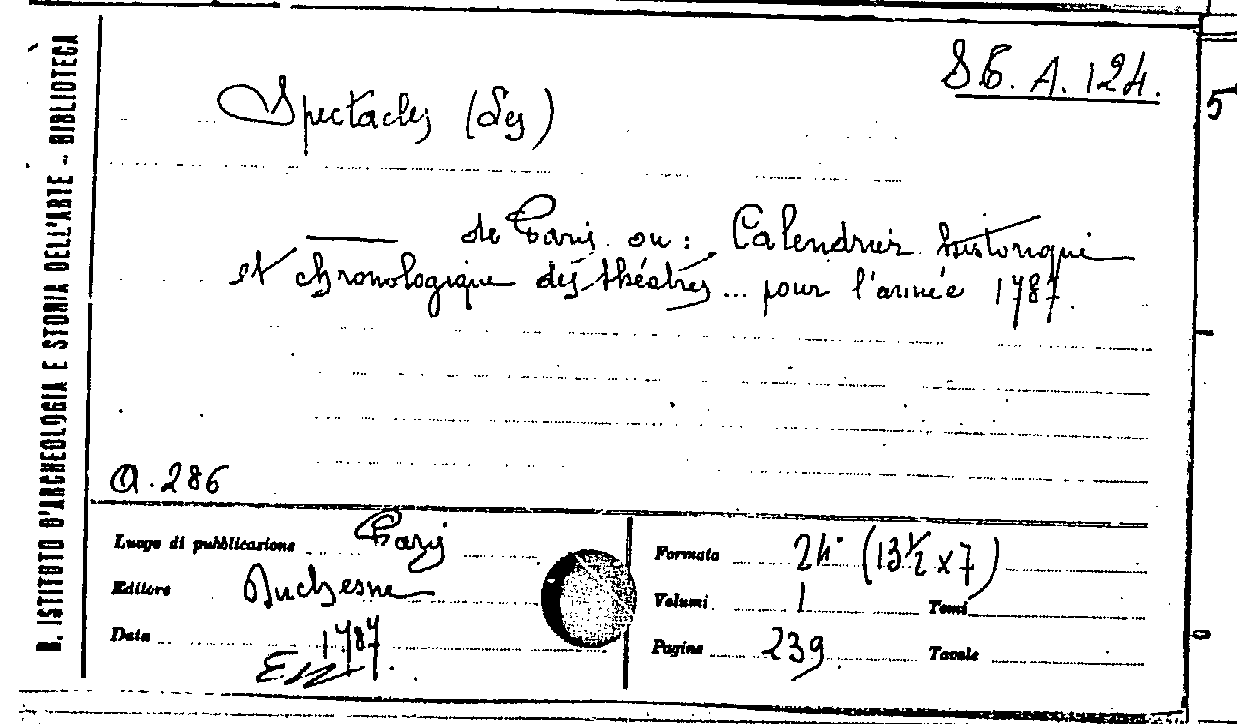 R. ISTITUTO D'ARCHEOLOGIA E STORIA DELL'ARTE - BIBLIOTECA
S6. A. 124.
5
Spectacles (des)
—— de Paris ou : Calendrier historique
et chronologique des théâtres ... pour l'année 1787.
Q. 286
Luogo di pubblicazione Paris
Editore Duchesne
Data 1787.
Formato 24° (13½ x 7)
Volumi 1 Tomi
Pagine 239 Tavole